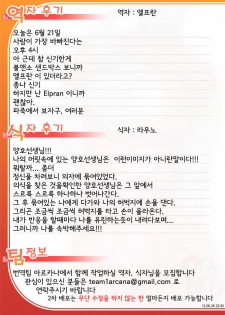 역자 후기
역자 : 엘프란
오늘은 6월 21일
사람이 가장 바빠진다는
오후 4시
아 근데 참 신기한게
블앤소 샌드박스 보니까
엘프란 이 있더라고?
종나 신기
하지만 난 Elpran 이니까
괜찮아.
파죽에서 보자구, 여러분
식자 후기
식자 : 라우노
양호선생님!!!
나의 머릿속에 있는 양호선생님은 이런이미지가 아니란말이다!!!
뭐랄까... 좀더
정신을 차려보니 의자에 묶여있었다.
의식을 찾은것을확인한 양호선생님은 그 앞에서
스르륵 스르륵 하나하나 벗어가기 시작했다.
그 후 묶여있는 나에게 다가와 나의 허벅지에 손을 댄다.
그리곤 조금씩 조금씩 허벅지를 타고 손이 올라온다.
내가 반응을 할때마다 나를 원하는듯이 내려다보며...
그러니까 나를 속박해주세요!!!
팀 정보
번역팀 아르카나에서 함께 작업하실 역자, 식자님을 모집합니다
관심이 있으신 분들은 team1arcana@gmail.com 로
연락주시기 바랍니다
2차 배포는 무단 수정을 하지 않는 한 얼마든지 배포 가능합니다